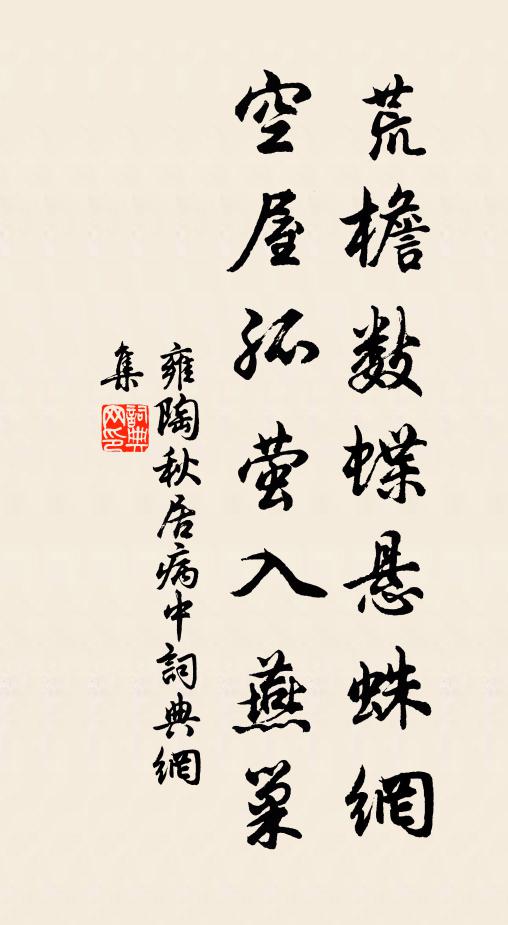 荒檐数蝶悬蛛網
空屋孤萤入燕巢
雍陶秋居病中詞典網
集
詞典网印